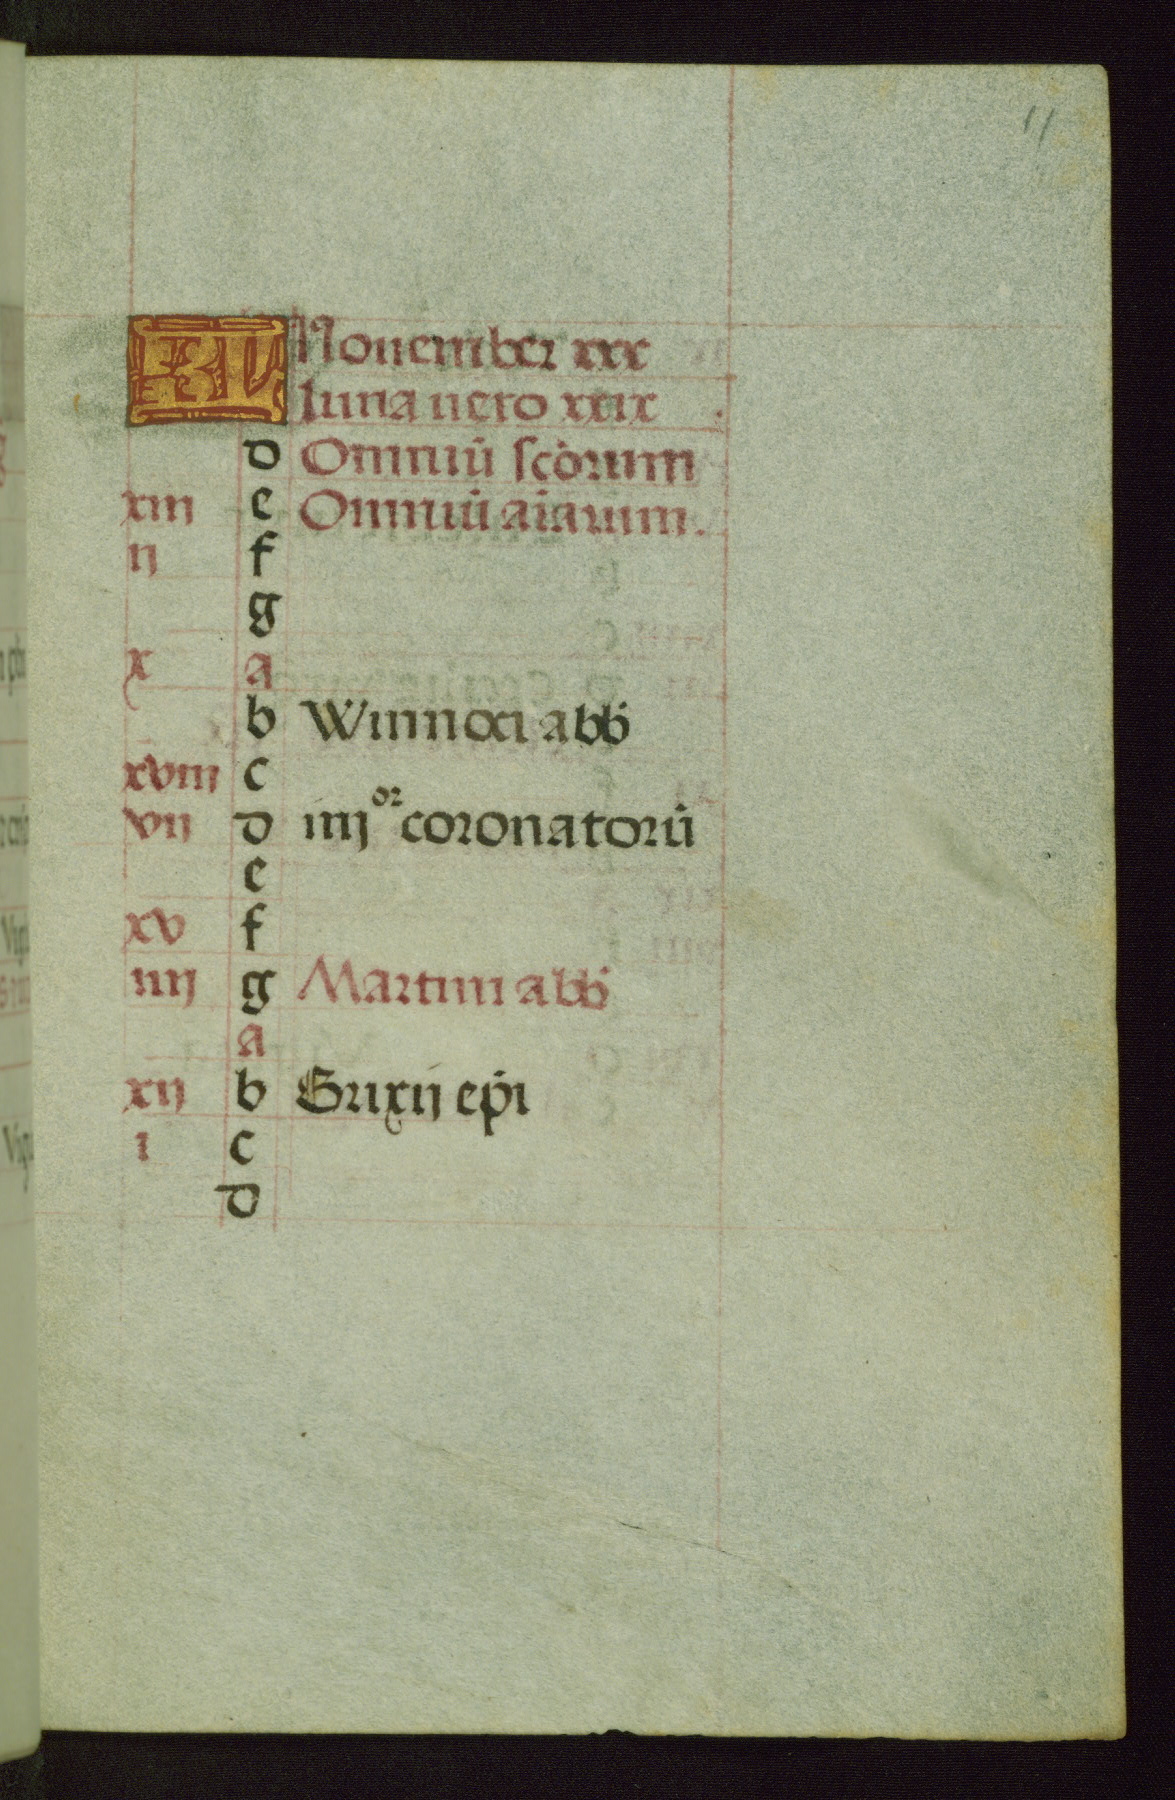 11
KL Nouember xxx
luna uero xxix
d Omniū scōrum
xiii e Omniū aīarum.
ii f
g
x a
b Winnoci abb̄
xviii c
vii d iiijor coronatorū
e
xv f
iiij g Martini abb̄
a
xij b Brixij ep̄i
i c
d